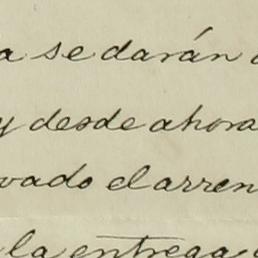 a se darán
y desde ahora
vado el arren
la entrega